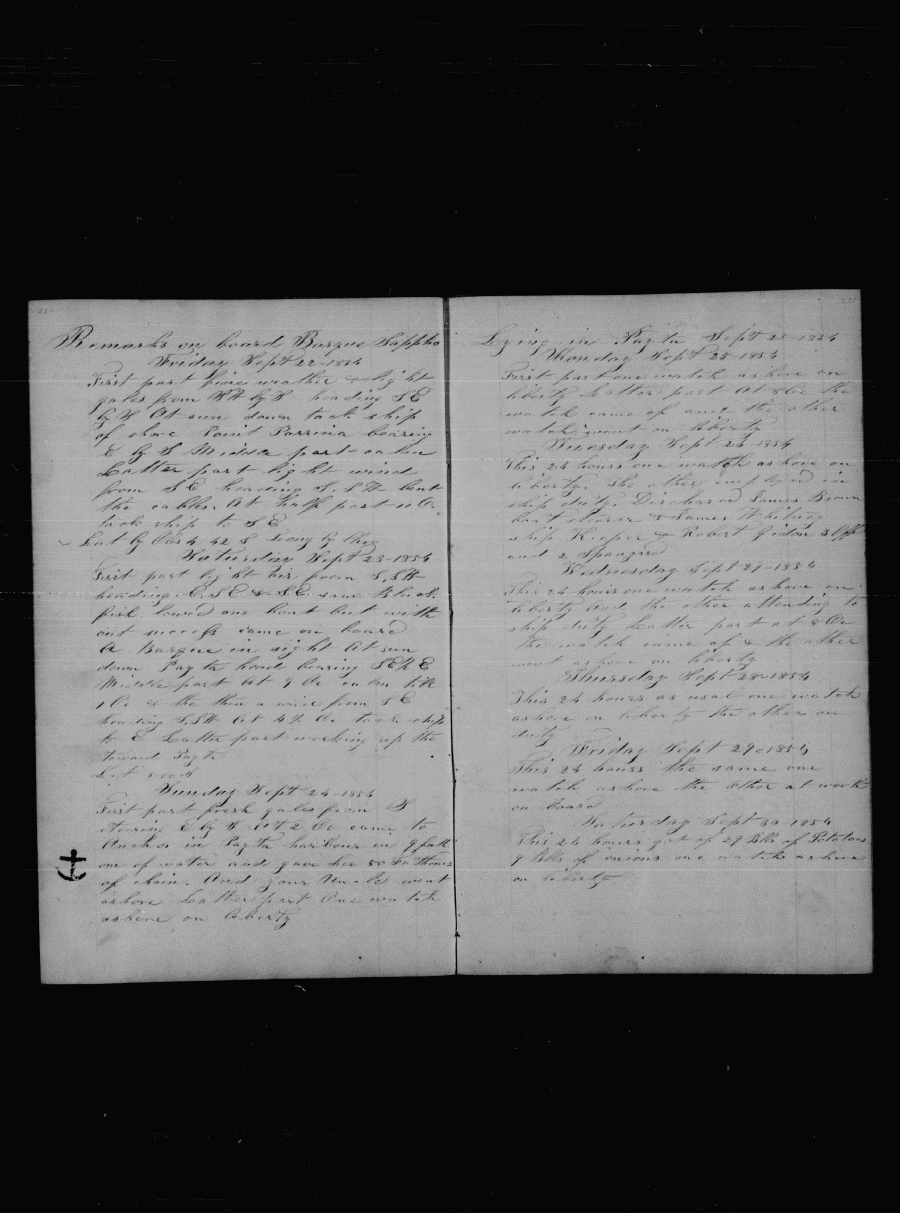 Remarks on board Barque Sappho
Friday Sept 22-1854
First part fine weather & light
gales from SW by S heading SE
by S At sun down took ship
of shore Point Parrina bearing
E by S Middle part calm
Latter part light wind
from SE heading S.SW bent
the cables. At half past 11 Oc.
tack ship to SE
Lat by Obs 4 42 S Long by the
Saturday Sept 23-1854
First part light air from S.SW
heading E.SE & SE saw Black
fish lowed one boat but with
out success came on board
A Barque in sight At sun
down Payta head bearing SE½E
Middle part At 9 Oc calm till
1 Oc the then a wind from SE
heading S.SW At 4½ Oc. took ship
to E Latter part working up the
toward Payta
Lat 5.00 S
Sunday Sept 24-1854
First part fresh gales from S
steering E by S At 2 Oc came to
Anchor in Payta harbour in 9 fath
om of water and gave her 50 fathoms
of chain. And your Uncle went
ashore Latter part One watch
ashore on liberty
Lying in Payta Sept 25-1854
Monday Sept 25-1854
First part one watch ashore on
liberty Latter part At 8 Oc the
watch came of and the other
watch went on liberty
Tuesday Sept 26-1854
This 24 hours one watch ashore on
liberty. the other employed in
ship duty Discharged James Brown
boat steerer & James
ship Keeper & Robert
and 2 Spanyard
Wednesday Sept 27-1854
This 24 hours one watch ashore on
liberty and the other attending to
ship duty Latter part at 8 Oc
the watch came of & the other
went ashore on liberty
Thursday Sept 28-1854
This 24 hours as usal one watch
ashore on liberty the other on
duty
Friday Sept 29-1854
This 24 hours the same one
watch ashore the other at work
on board
Saturday Sept 30-1854
This 24 hours got of 29 Blls of Potatoes
9 blls of onions one watch ashore
on liberty